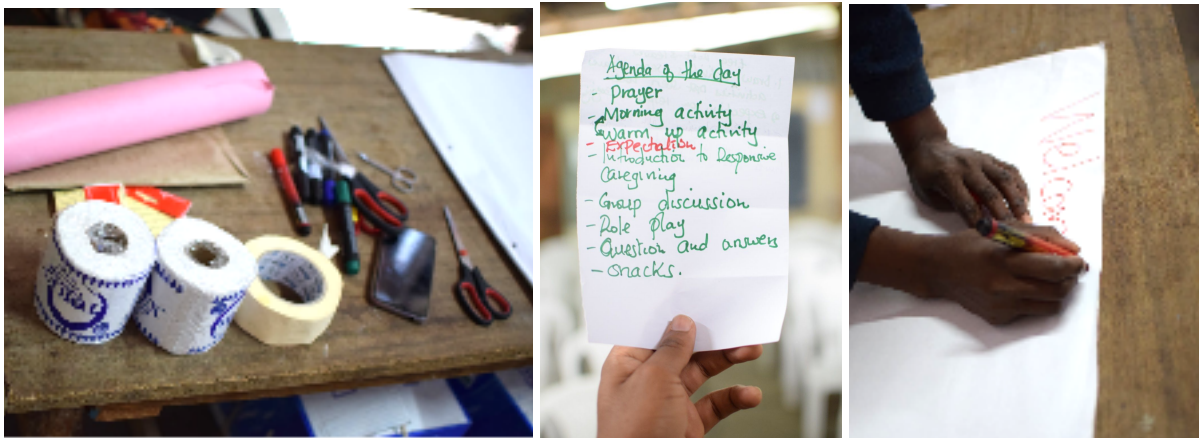 Agenda of the day
- Prayer
- Morning activity
Warm up activity
- Expectation
- Introduction to Responsive
Caregiving
- Group discussion
- Role play
- Question and answers
- Snacks.